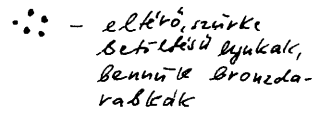 – eltérő, szürke
betöltésű lyukak,
bennük bronzda-
rabkák